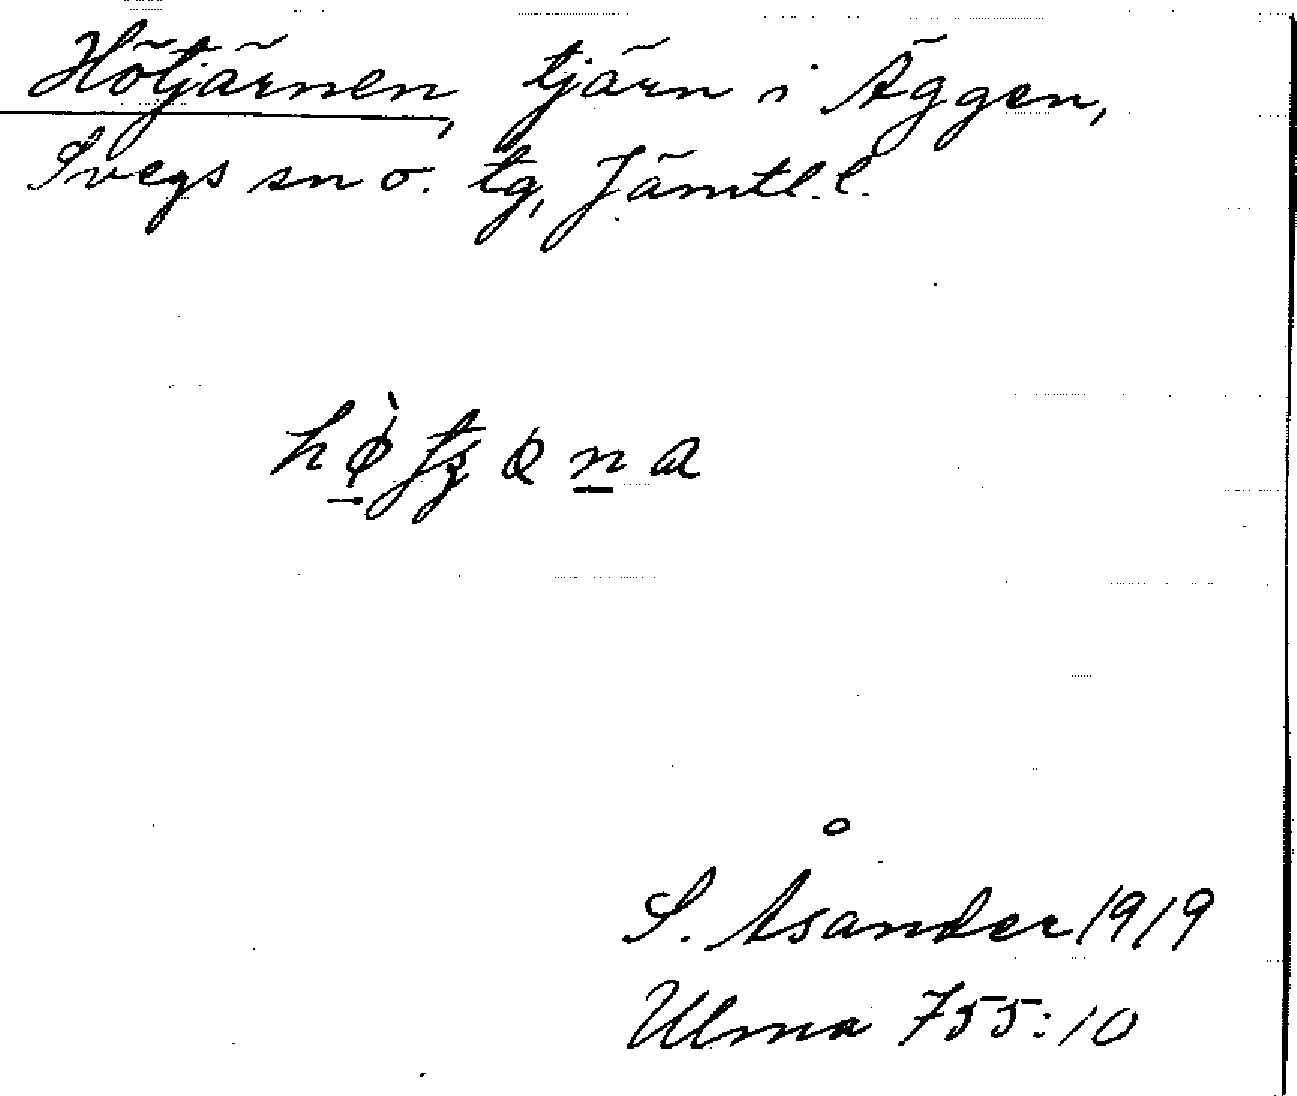 Hötjärnen, tjärn i Äggen,
Svegs sn o. tg, Jämtl. l.
S. Åsander 1919
Ulma 755:10